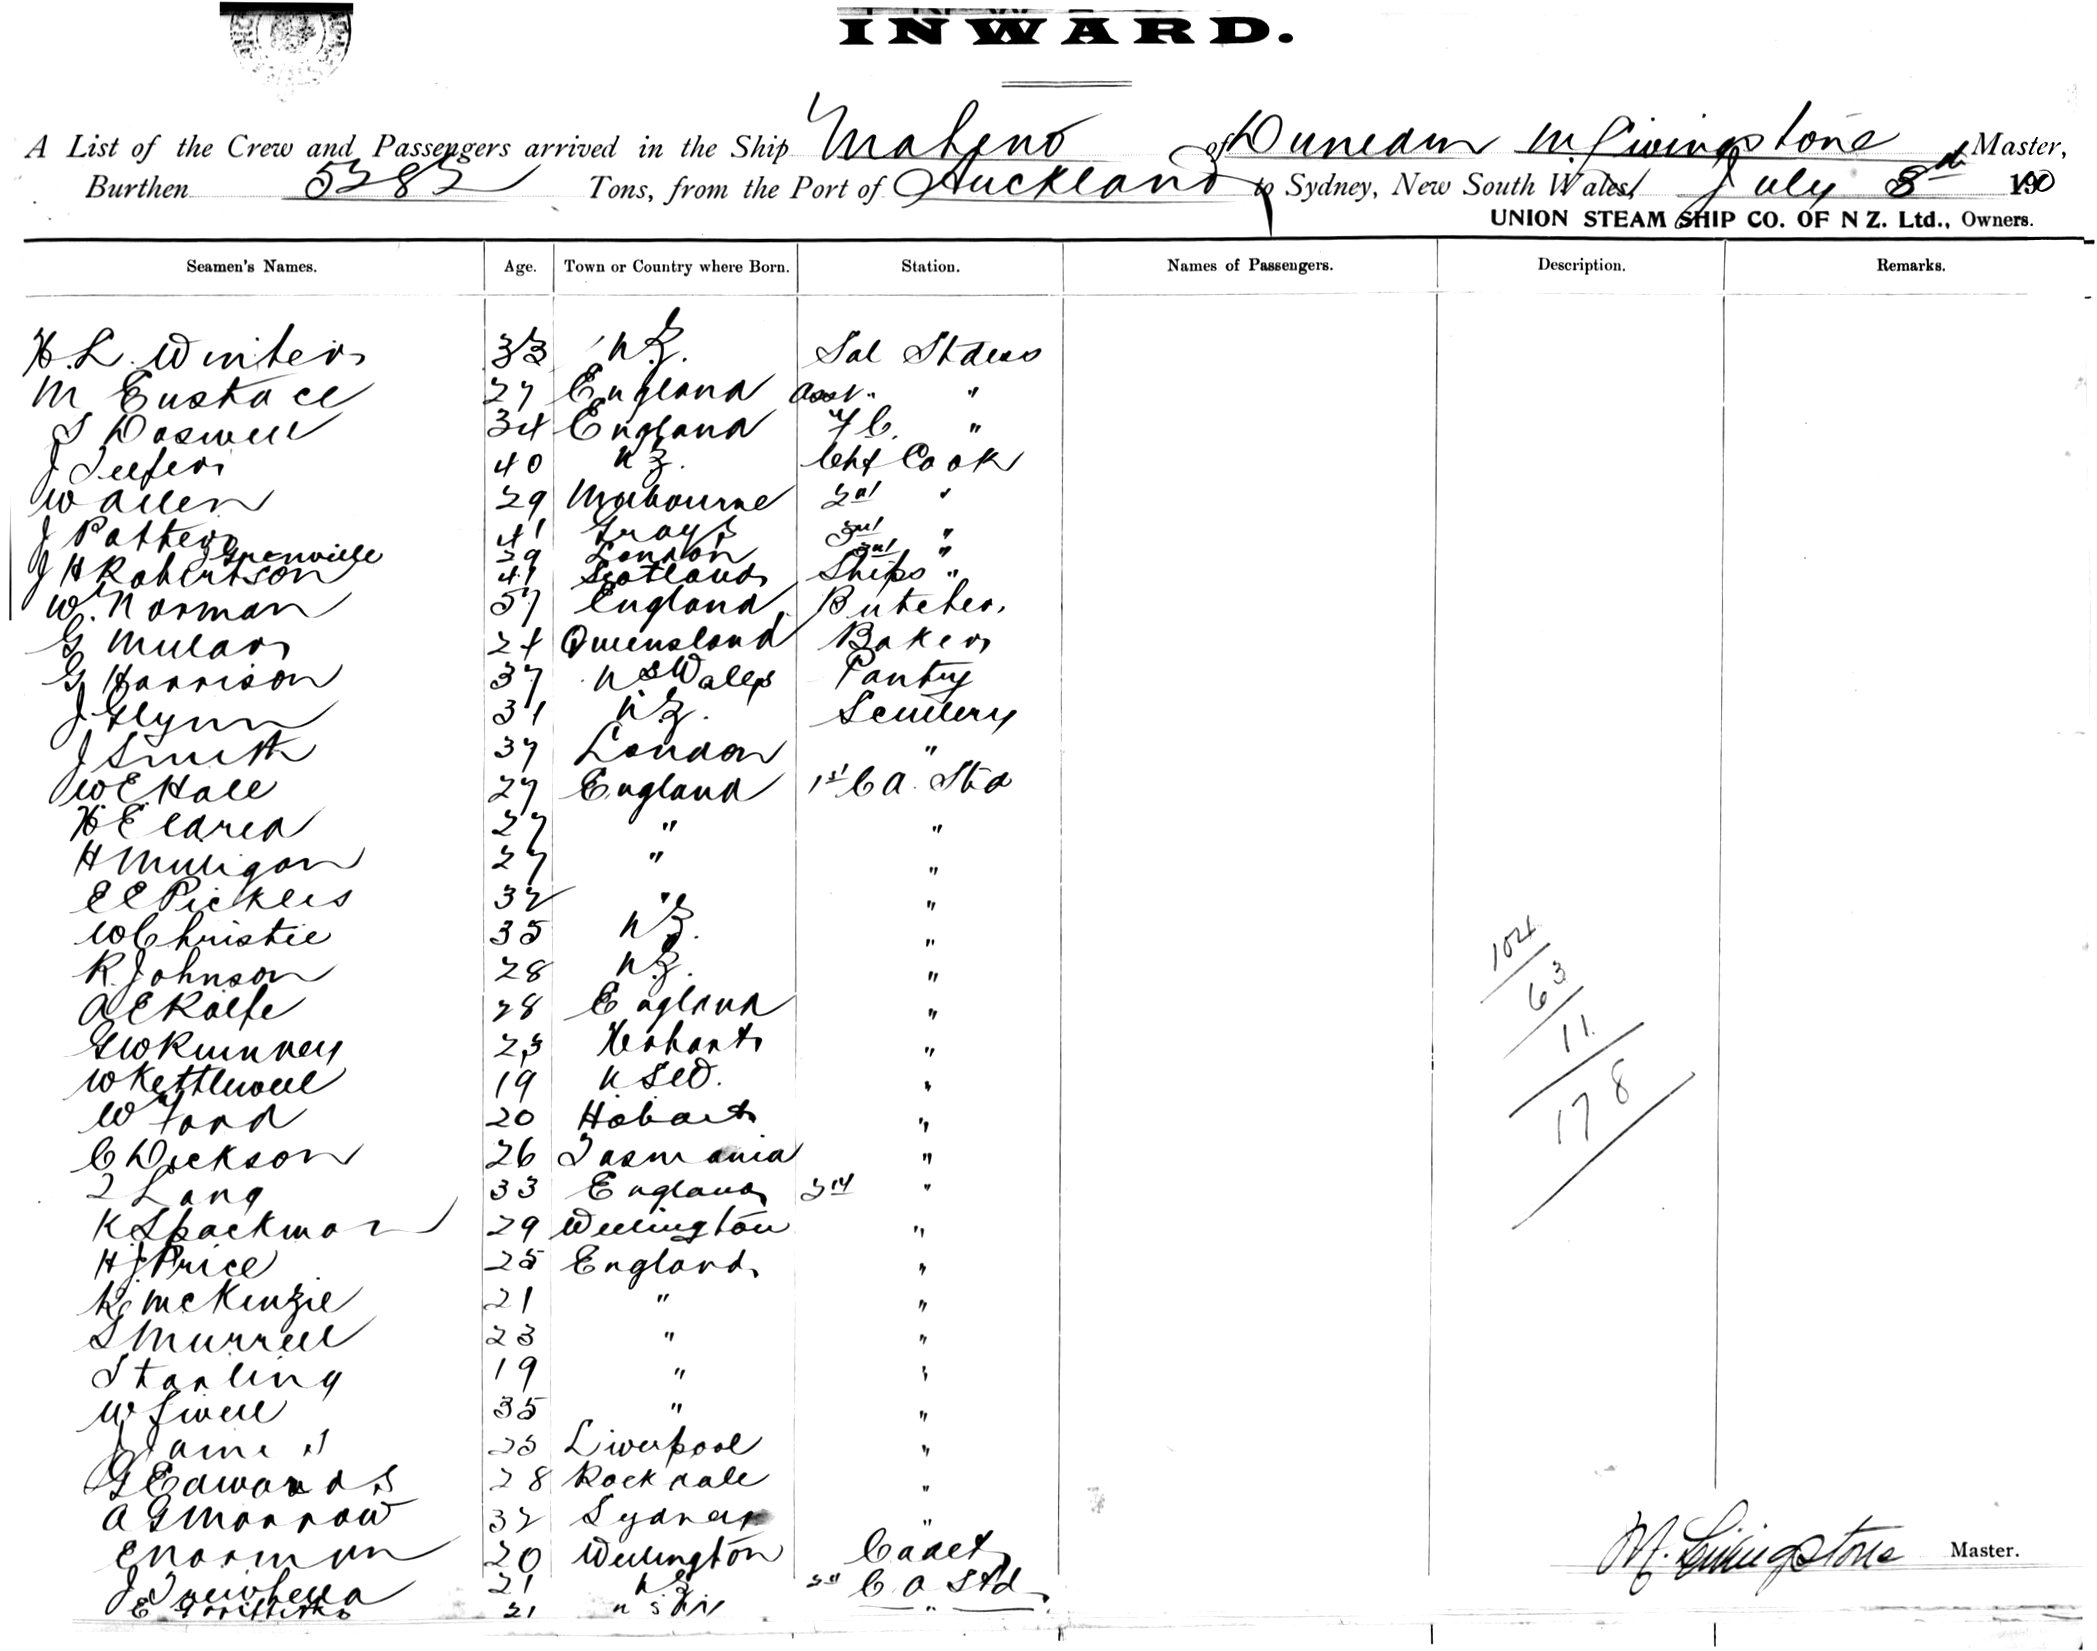 INWARD.
A List of the Crew and Passengers arrived in the Ship Maheno of Dunedin M. Livingstone Master,
Burthen 5282 Tons, from the Port of Auckland to Sydney, New South Wales, July 8th 1910
UNION STEAM SHIP CO. OF N Z. Ltd., Owners.
Seamen's Names. Age. Town or Country where Born. Station. Names of Passengers. Description. Remarks.
H. L. Winter 33 N.Z. Sal Stdess
M Eustace 27 England Asst. "
S Doswell 34 England "
J 40 N Z. Chf Cook
W Allen 29 Melbourne 2nd "
J Patten 41 Grays 3rd "
Grenville 29 London "
J H Robertson 41 Scotland Ships "
W. Norman 57 England Butcher.
G Mular 24 Queensland Baker
G Harrison 37 N S Wales Pantry
J Glynn 31 N.Z. Scullery
J Smith 37 London "
W E Hall 27 England 1st C A. Std
H E 27 " "
H Mulligan 27 " "
E E Pickles 32 " "
W Christie 35 N Z. "
R. Johnson 28 N.Z. "
A E Rolfe 28 England "
G W Rumney 23 Hobart "
W Kettlewell 19 N S W. "
W Ford 20 Hobart "
C Dickson 26 Tasmania "
Lang 33 England 2nd "
K Spackman 29 Wellington "
H J Price 25 England "
K McKenzie 21 " "
S Murrell 23 " "
Starling 19 " "
W 35 " "
J 25 Liverpool "
G Edwards 28 Rockdale "
A G Morrow 32 Sydney "
E Norman 20 Wellington Cadet
J Trewhella 21 N Z 2nd C A Std
E Griffiths 21 N S W "
104
63
11
178
M. Livingstone Master.